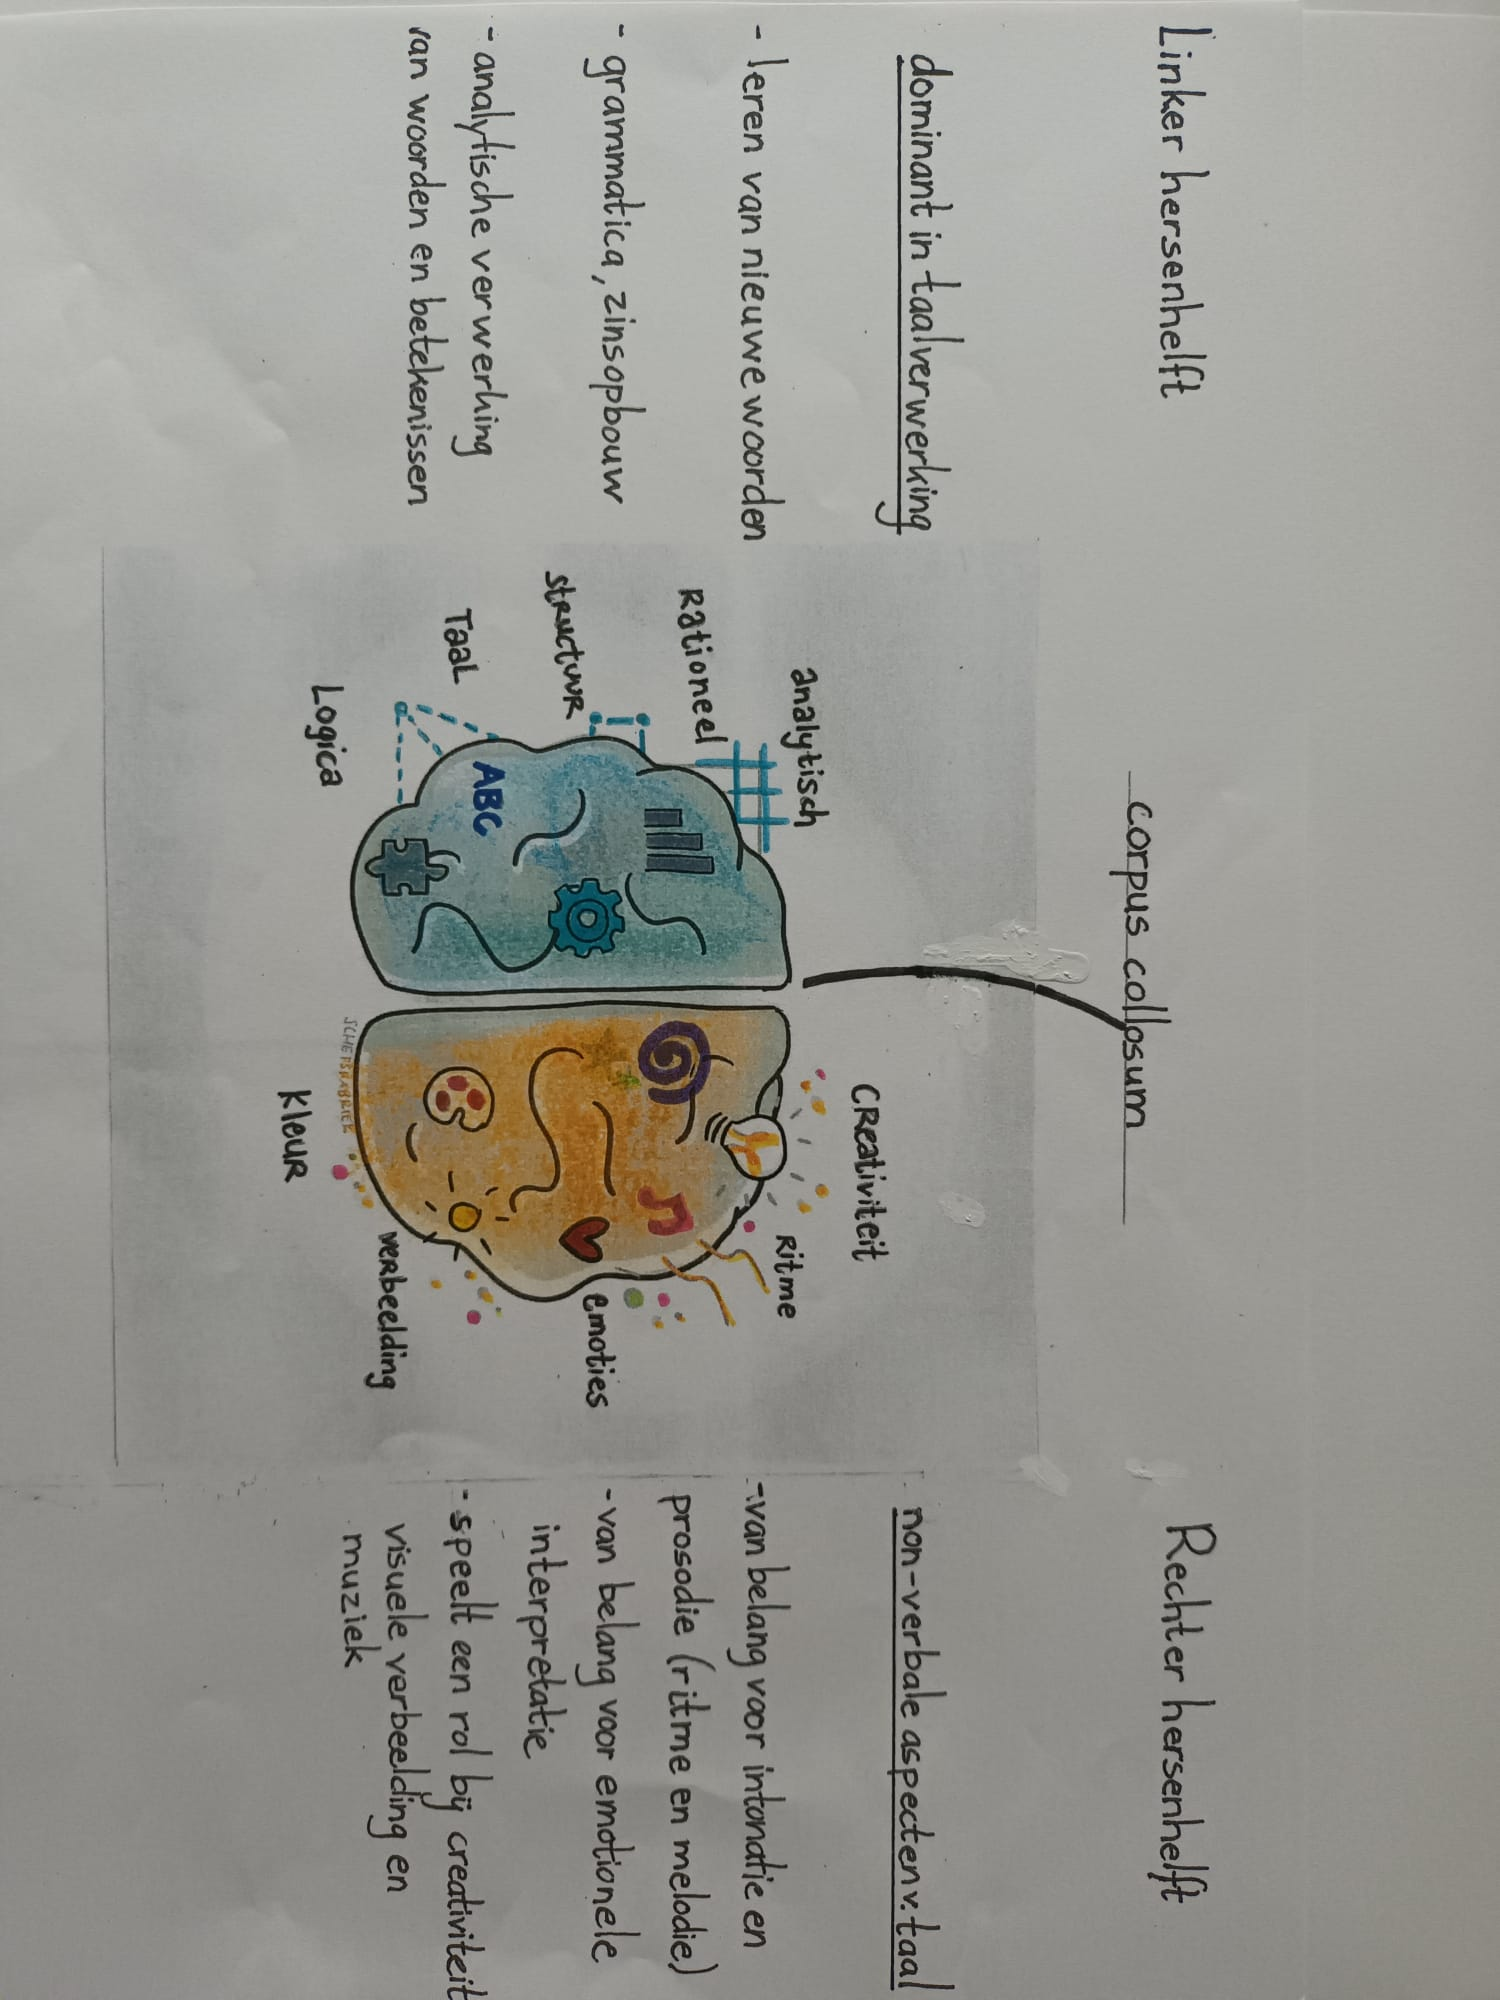 Linker hersenhelft
dominant in taalverwerking
- leren van nieuwe woorden
- grammatica, zinsopbouw
- analytische verwerking
van woorden en betekenissen
corpus collosum
analytisch
Rationeel
structuur
Taal
Logica
ABC
CReativiteit
Ritme
emoties
verbeelding
kleur
SCHETSFABRIEK
Rechter hersenhelft
non-verbale aspecten v. taal
- van belang voor intonatie en
prosodie (ritme en melodie)
- van belang voor emotionele
interpretatie
- speelt een rol bij creativiteit
visuele verbeelding en
muziek